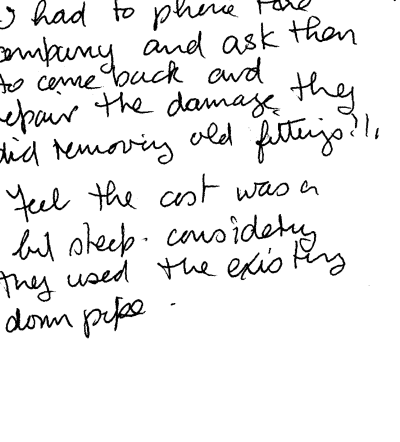 I had to phone the
company and ask them
to come back and
repair the damage they
did removing old fittings!!,
feel the cost was a
bit steep. considering
they used the existing
down pipe.